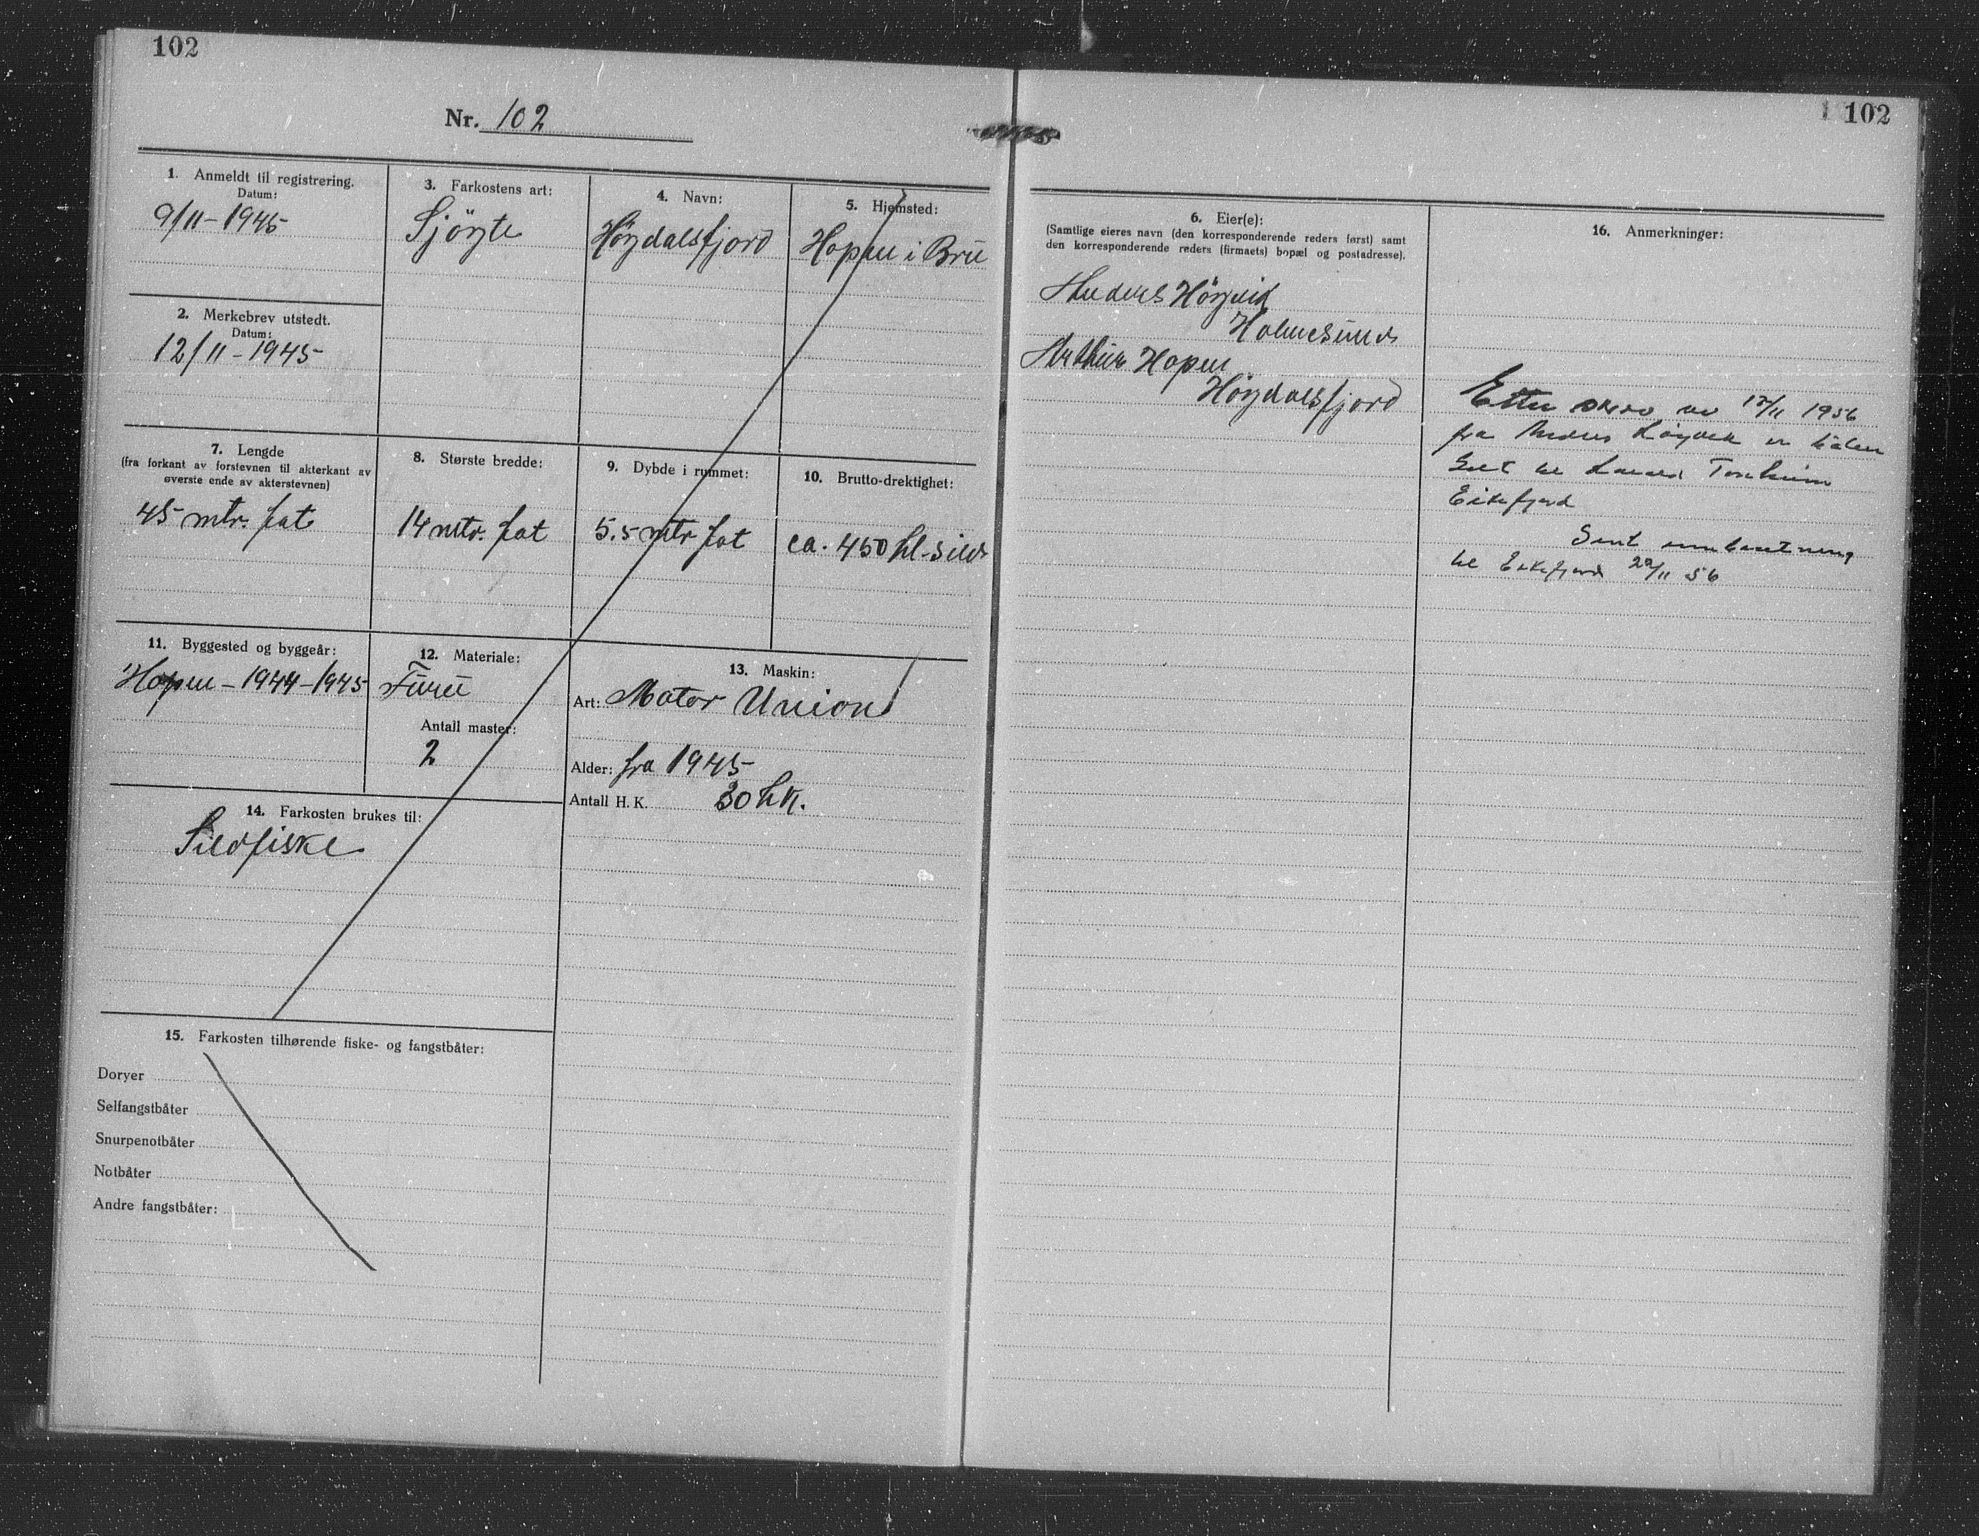 102
Nr. 102
1. Anmeldt til registrering.
Datum:
9/11-1945
2. Merkebrev utstedt.
Datum:
12/11-1945
3. Farkostens art:
Sjöyte
4. Navn:
Höydalsfjord
5. Hjemsted:
Hopen i Bru
7. Lengde
(fra forkant av forstevnen til akterkant av
øverste ende av akterstevnen)
45 mtr. fot
8. Største bredde:
14 mtr. fot
9. Dybde i rummet:
5.5 mtr fot
10. Brutto-drektighet:
ca. 450 hl. sild
11. Byggested og byggeår:
Hopen - 1944-1945
12. Materiale:
Furu
Antall master:
2
13. Maskin:
Art: Motor Union
Alder: fra 1945
Antall H. K. 30 hk.
14. Farkosten brukes til:
Sildfiske
15. Farkosten tilhørende fiske- og fangstbåter:
Doryer
Selfangstbåter
Snurpenotbåter
Notbåter
Andre fangstbåter:
102
6. Eier(e):
(Samtlige eieres navn (den korresponderende reders først) samt
den korresponderende reders (firmaets) bopæl og postadresse).
Anders Höyvik
Holmesund
Arthur Hopen
Höydalsfjord
16. Anmerkninger:
Etter av 1956
fra Anders er båten
til
Eikefjord
Sent
til Eikefjord 56